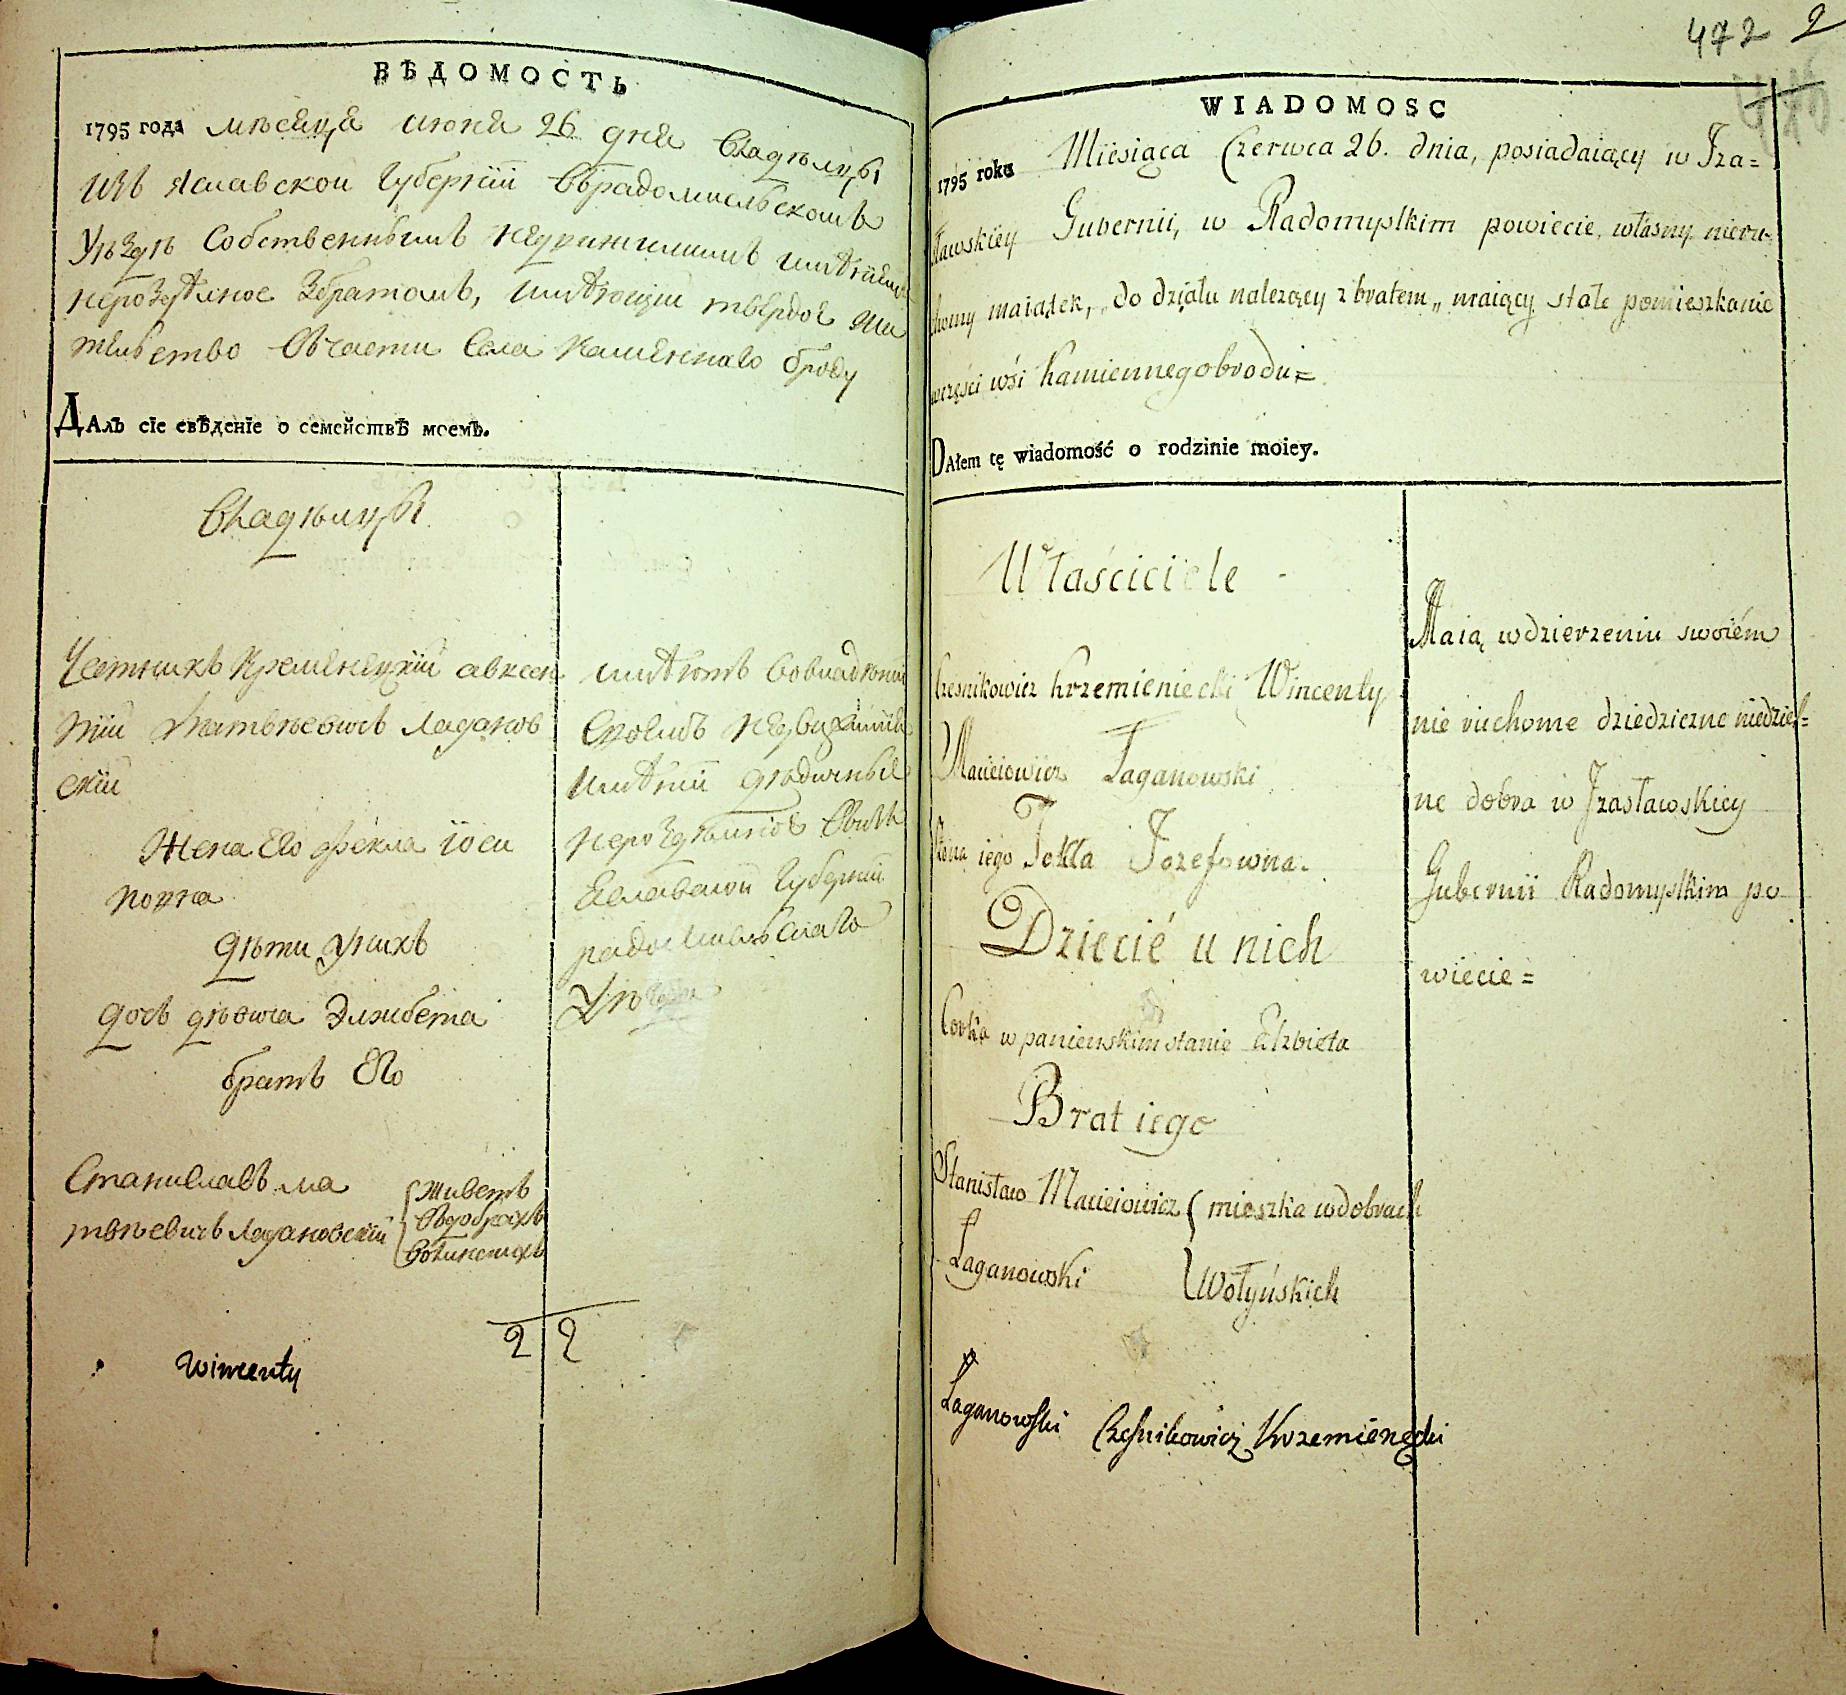 ВѢДОМОСТЬ
1795 года мѣсяца июня 26 дня Владѣлцы
Изъ Яславской Губерніи Въ радомисльскомъ
Уѣздѣ Собственнымъ недвижимымъ имѣніемъ
нерозделное Збратомъ, имѣющіи твердое жи
тельство Въчасти Села Каменнаго броду
ДАлъ сіе свѣденіе о семействѣ моемъ.
Владѣлцы
Чесникъ Кременецкій авксен
тій Матвѣевичъ Лаганов
скій
Жена Его Фекла іоси
повна
дѣти Унихъ
дочъ девица Элжбета
братъ Его
Станиславъ ма
твѣевичъ Лагановскій
Живетъ
Въдобрахъ
Волинскихъ
имѣютъ Вовладѣніи
Своемъ недвижиміе
имѣніи дѣдичные
нерозделніе Въизъ
Еславской Губерніи
радомисльскаго
Уѣзда
2 2
Wincenty
472 2
WIADOMOSC
1795 roku Miesiąca Czerwca 26. dnia, posiadaiący w Jza=
sławskiey Gubernii, w Radomyslkim powiecie, własny nieru-
chomy maiątek, do działu należący z bratem, maiący stałe pomieszkanie
wczęści wśi Kamiennegobrodu=
DAłem tę wiadomość o rodzinie moiey.
Właściciele
Czesnikowicz Krzemieniecki Wincenty
Macieiowicz Łaganowski
Żona iego Tekla Jozefowna.
Dziecié u nich
Corka w panienskim stanie Elzbieta
Brat iego
Stanisław Macieiowicz { mieszka wdobrach
Łaganowski { Wołyńskich
Maią wdzierzeniu swoiém
nie ruchome dziedziczne niedziel=
ne dobra w Jzasławskiey
Gubernii Radomyslkim po
wiecie=
Łaganowski Czesnikowicz Krzemieniecki